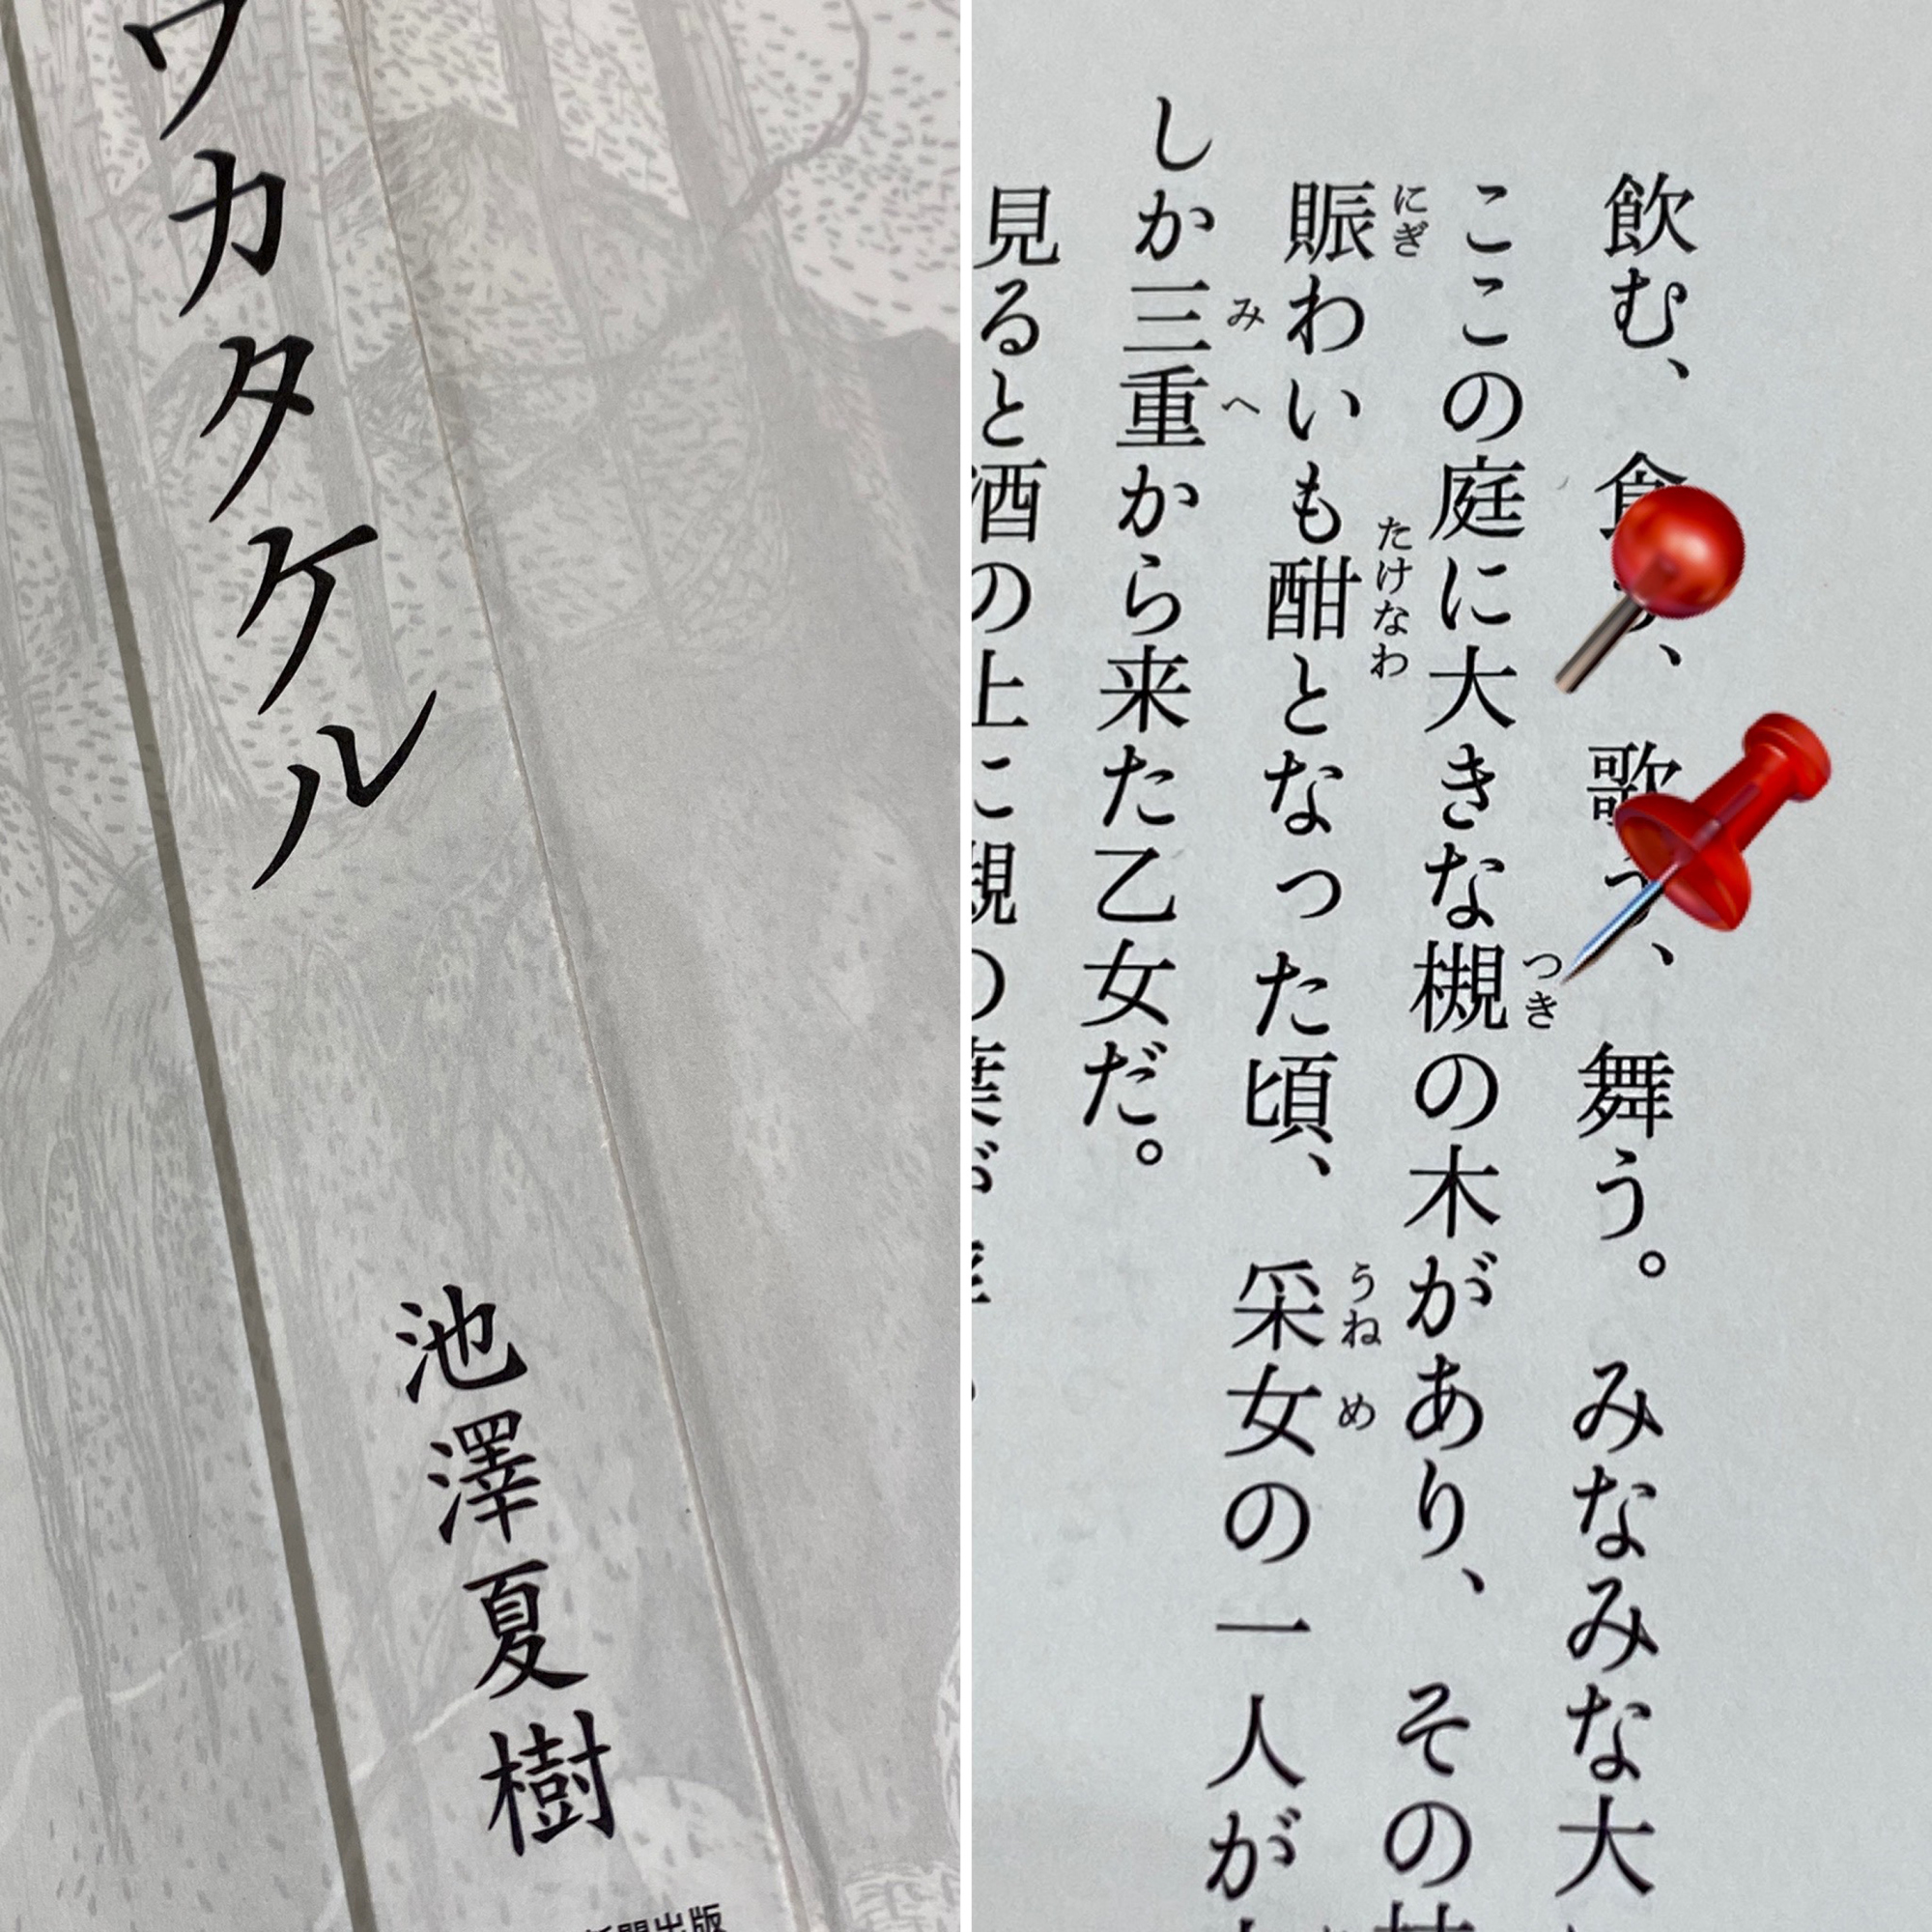 ワカタケル
池澤夏樹
新聞出版
飲む、食う、歌う、舞う。みなみな大
ここの庭に大きな槻の木があり、その枝
つき
賑わいも酣となった頃、采女の一人が
にぎ
たけなわ
うねめ
しか三重から来た乙女だ。
みへ
見ると酒の上に槻の葉が